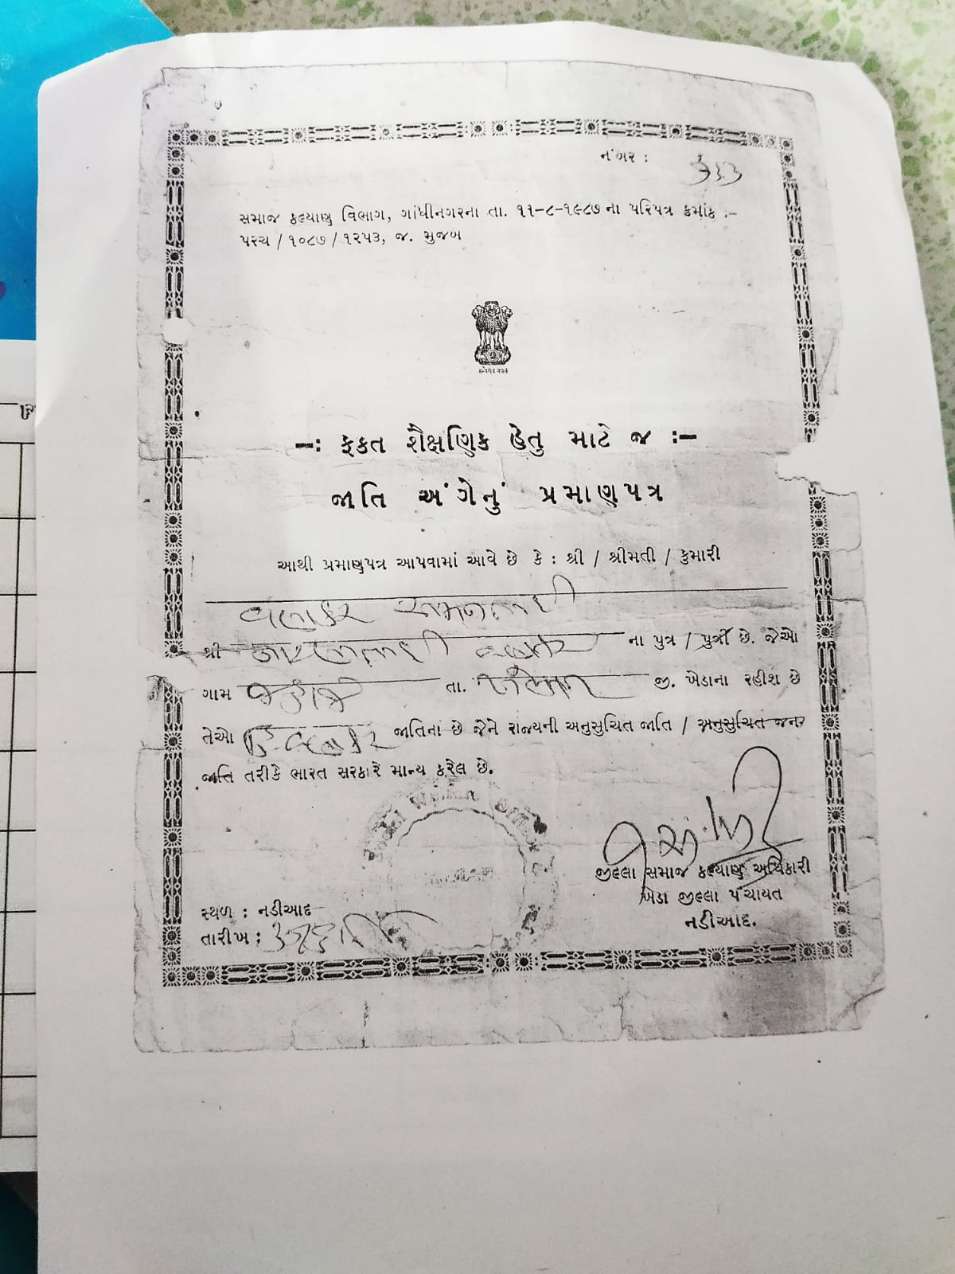 નંબર :
સમાજ કલ્યાણ વિભાગ, ગાંધીનગરના તા. ૧૧-૮-૧૯૮૭ ના પરિપત્ર ક્રમાંક :-
પરચ / ૧૦૮૭ / ૧૨૫૩, જ. મુજબ
-: ફકત શૈક્ષણિક હેતુ માટે જ :-
જાતિ અંગેનું પ્રમાણપત્ર
આથી પ્રમાણપત્ર આપવામાં આવે છે કે : શ્રી / શ્રીમતી / કુમારી
વણકર
શ્રી ના પુત્ર / પુત્રી છે. જેઓ
ગામ તા. જી. ખેડાના રહીશ છે
તેઓ હિ. વણકર જાતિના છે જેને રાજ્યની અનુસુચિત જાતિ / અનુસુચિત જન
જાતિ તરીકે ભારત સરકારે માન્ય કરેલ છે.
Social Welfare Officer
જીલ્લા સમાજ કલ્યાણ અધિકારી
ખેડા જીલ્લા પંચાયત
નડીઆદ.
સ્થળ : નડીઆદ
તારીખ :